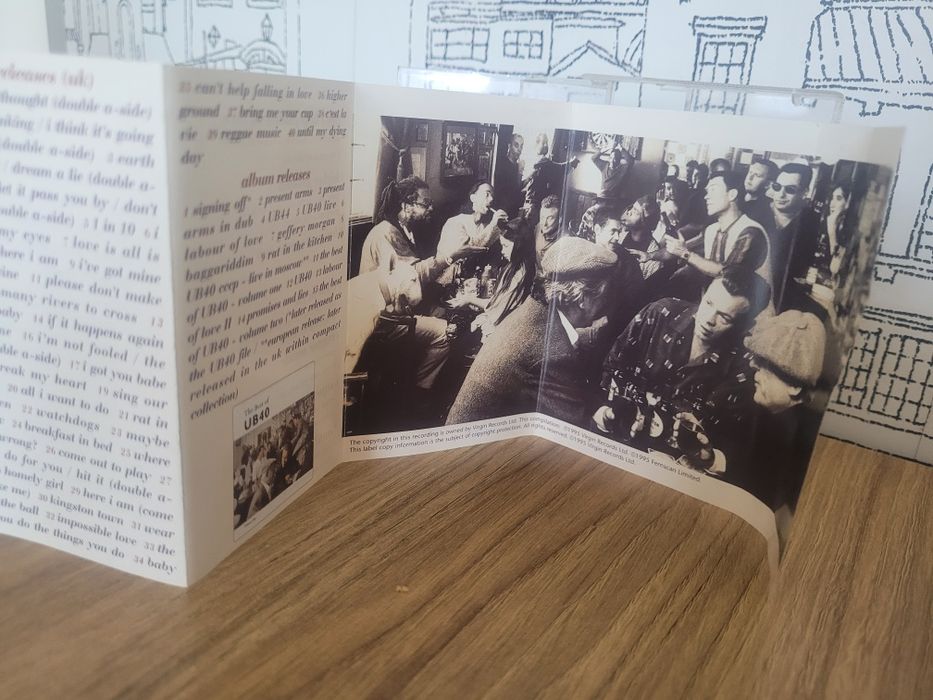 releases (uk)
thought (double a-side)
nking / i think it's going
(double a-side) 3 earth
/ dream a lie (double a-
let it pass you by / don't
uble a-side) 5 1 in 10 6 i
my eyes 7 love is all is
here i am 9 i've got mine
rine 11 please don't make
many rivers to cross 13
baby 14 if it happens again
me 16 i'm not fooled / the
ble a-side) 17 i got you babe
reak my heart 19 sing our
20 all i want to do 21 rat in
22 watchdogs 23 maybe
24 breakfast in bed 25 where
wrong? 26 come out to play 27
do for you / hit it (double a-
homely girl 29 here i am (come
ke me) 30 kingston town 31 wear
the ball 32 impossible love 33 the
you do the things you do 34 baby
35 can't help falling in love 36 higher
ground 37 bring me your cup 38 c'est la
rie 39 reggae music 40 until my dying
day
album releases
1 signing off* 2 present arms 3 present
arms in dub 4 UB44 5 UB40 live 6
labour of love 7 geffery morgan 8
baggariddim 9 rat in the kitchen 10
UB40 cccp - live in moscow** 11 the best
of UB40 - volume one 12 UB40 13 labour
of love II 14 promises and lies 15 the best
of UB40 - volume two (*later released as
the UB40 file / **european release; later
released in the uk within compact
collection)
The Best of
UB40
The copyright in this recording is owned by Virgin Records Ltd. This compilation: ℗1995 Virgin Records Ltd. ©1995 Fernscan Limited.
This label copy information is the subject of copyright protection. All rights reserved. ©1995 Virgin Records Ltd.